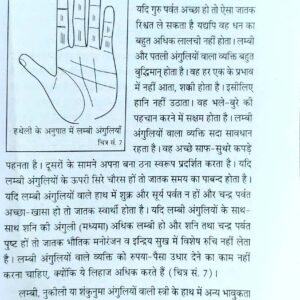 यदि गुरु पर्वत अच्छा हो तो ऐसा जातक
रिश्वत ले सकता है यद्यपि वह धन का
बहुत अधिक लालची नहीं होता। लम्बी
और पतली अंगुलियों वाला व्यक्ति बहुत
बुद्धिमान् होता है। वह हर एक के प्रभाव
में नहीं आता, शक्की होता है। इसीलिए
हानि नहीं उठाता। वह भले-बुरे की
पहचान करने में सक्षम होता है। लम्बी
अंगुलियों वाला व्यक्ति सदा सावधान
रहता है। वह अच्छे साफ-सुथरे कपड़े
हथेली के अनुपात में लम्बी अंगुलियाँ
चित्र सं. 7
पहनता है। दूसरों के सामने अपना बना ठना स्वरूप प्रदर्शित करता है। यदि
लम्बी अंगुलियों के ऊपरी सिरे चौरस हों तो जातक समय का पाबन्द होता है।
यदि लम्बी अंगुलियों वाले हाथ में शुक्र और सूर्य पर्वत न हों और चन्द्र पर्वत
अच्छा-खासा हो तो जातक स्वार्थी होता है। यदि लम्बी अंगुलियों के साथ-
साथ शनि की अंगुली (मध्यमा) अधिक लम्बी हो और शनि तथा चन्द्र पर्वत
पुष्ट हों तो जातक भौतिक मनोरंजन व इन्द्रिय सुख में विशेष रुचि नहीं लेता
है। लम्बी अंगुलियों वाले व्यक्ति को रुपया-पैसा उधार देने का काम नहीं
करना चाहिए, क्योंकि ये लिहाज अधिक करते हैं (चित्र सं. 7)।
लम्बी, नुकीली या शंकुनुमा अंगुलियों वाली स्त्री के हाथ में अन्य भावुकता